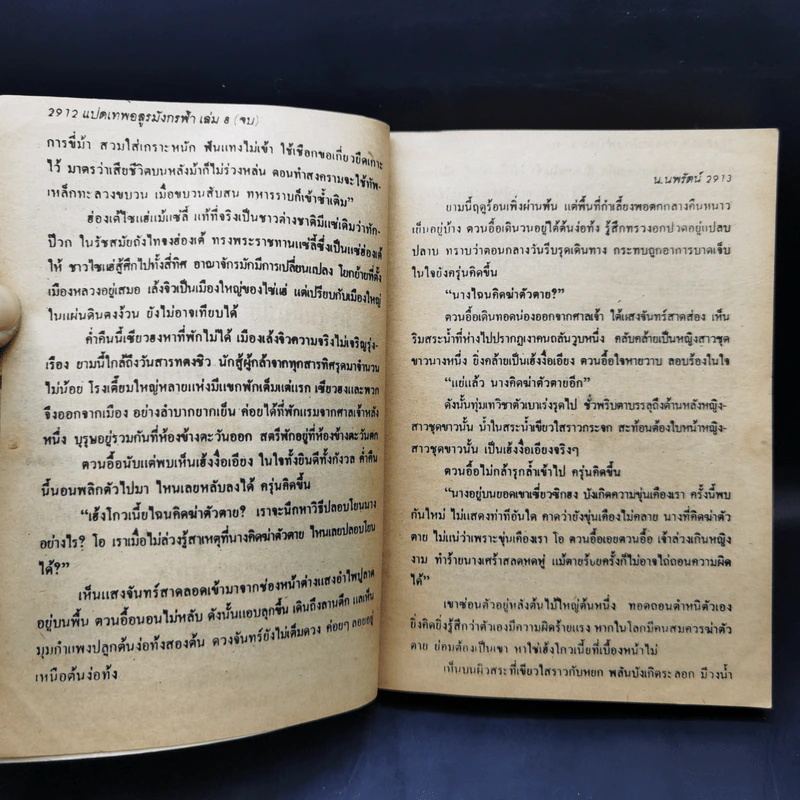 2912 แปดเทพอสูรมังกรฟ้า เล่ม 8 (จบ)
การขี่ม้า สวมใส่เกราะหนัก ฟันแทงไม่เข้า ใช้เชือกขอเกี่ยวยึดเกาะ
ไว้ มาตรว่าเสียชีวิตบนหลังม้าก็ไม่ร่วงหล่น ตอนทำสงครามจะใช้ทัพ-
เหล็กทะลวงขบวน เมื่อขบวนสับสน ทหารราบก็เข้าซ้ำเติม”
ฮ่องเต้ไซ่แฮ่แม้แซ่ลี้ แท้ที่จริงเป็นชาวต่างชาติมีแซ่เดิมว่าทัก-
ป๊วก ในรัชสมัยถังไทจงฮ่องเต้ ทรงพระราชทานแซ่ลี้ซึ่งเป็นแซ่ฮ่องเต้
ให้ ชาวไซ่แฮ่สู้ศึกไปทั้งสี่ทิศ อาณาจักรมักมีการเปลี่ยนแปลง โยกย้ายที่ตั้ง
เมืองหลวงอยู่เสมอ เล้งจิวเป็นเมืองใหญ่ของไซ่แฮ่ แต่เปรียบกับเมืองใหญ่
ในแผ่นดินตงง้วน ยังไม่อาจเทียบได้
ค่ำคืนนี้เซียวฮงหาที่พักไม่ได้ เมืองเล้งจิวความจริงไม่เจริญรุ่ง-
เรือง ยามนี้ใกล้ถึงวันสารทตงชิว นักสู้ผู้กล้าจากทุกสารทิศรุดมาจำนวน
ไม่น้อย โรงเตี้ยมใหญ่หลายแห่งมีแขกพักเต็มแต่แรก เซียวฮงและพวก
จึงออกจากเมือง อย่างลำบากยากเย็น ค่อยได้ที่พักแรมจากศาลเจ้าหลัง
หนึ่ง บุรุษอยู่รวมกันที่ห้องข้างตะวันออก สตรีพักอยู่ที่ห้องข้างตะวันตก
ตวนอื้อนับแต่พบเห็นเฮ้งงื่อเอียง ในใจทั้งยินดีทั้งกังวล ค่ำคืน
นี้นอนพลิกตัวไปมา ไหนเลยหลับลงได้ ครุ่นคิดขึ้น
“เฮ้งโกวเนี้ยไฉนคิดฆ่าตัวตาย? เราจะนึกหาวิธีปลอบโยนนาง
อย่างไร? โอ เราเมื่อไม่ล่วงรู้สาเหตุที่นางคิดฆ่าตัวตาย ไหนเลยปลอบโยน
ได้?”
เห็นแสงจันทร์สาดลอดเข้ามาจากช่องหน้าต่างแสงอำไพปูลาด
อยู่บนพื้น ตวนอื้อนอนไม่หลับ ดังนั้นแอบลุกขึ้น เดินถึงลานตึก แลเห็น
มุมกำแพงปลูกต้นง่อทั้งสองต้น ดวงจันทร์ยังไม่เต็มดวง ค่อยๆ ลอยอยู่
เหนือต้นง่อทั้ง
น.นพรัตน์ 2913
ยามนี้ฤดูร้อนเพิ่งผ่านพ้น แต่พื้นที่กำเลี้ยงพอตกกลางคืนหนาว
เย็นอยู่บ้าง ตวนอื้อเดินวนอยู่ใต้ต้นง่อทั้ง รู้สึกทรวงอกปวดอยู่แปลบ
ปลาบ ทราบว่าตอนกลางวันรีบรุดเดินทาง กระทบถูกอาการบาดเจ็บ
ในใจยังครุ่นคิดขึ้น
“นางไฉนคิดฆ่าตัวตาย?”
ตวนอื้อเดินทอดน่องออกจากศาลเจ้า ใต้แสงจันทร์สาดส่อง เห็น
ริมสระน้ำที่ห่างไปปรากฏเงาคนถลันวูบหนึ่ง คลับคล้ายเป็นหญิงสาวชุด
ขาวนางหนึ่ง ยิ่งคล้ายเป็นเฮ้งงื่อเอียง ตวนอื้อใจหายวาบ ลอบร้องในใจ
“แย่แล้ว นางคิดฆ่าตัวตายอีก”
ดังนั้นทุ่มเทวิชาตัวเบาเร่งรุดไป ชั่วพริบตาบรรลุถึงด้านหลังหญิง-
สาวชุดขาวนั้น น้ำในสระน้ำเขียวใสราวกระจก สะท้อนต้องใบหน้าหญิง-
สาวชุดขาวนั้น เป็นเฮ้งงื่อเอียงจริงๆ
ตวนอื้อไม่กล้ารุกล้ำเข้าไป ครุ่นคิดขึ้น
“นางอยู่บนยอดเขาเซี่ยวซิกฮง บังเกิดความขุ่นเคืองเรา ครั้งนี้พบ
กันใหม่ ไม่แสดงท่าทีอันใด คาดว่ายังขุ่นเคืองไม่คลาย นางที่คิดฆ่าตัว
ตาย ไม่แน่ว่าเพราะขุ่นเคืองเรา โอ ตวนอื้อเอยตวนอื้อ เจ้าล่วงเกินหญิง
งาม ทำร้ายนางเศร้าสลดหดหู่ แม้ตายร้อยครั้งก็ไม่อาจไถ่ถอนความผิด
ได้”
เขาซ่อนตัวอยู่หลังต้นไม้ใหญ่ต้นหนึ่ง ทอดถอนตำหนิตัวเอง
ยิ่งคิดยิ่งรู้สึกว่าตัวเองมีความผิดร้ายแรง หากในโลกมีคนสมควรฆ่าตัว
ตาย ย่อมต้องเป็นเขา หาใช่เฮ้งโกวเนี้ยที่เบื้องหน้าไม่
เห็นบนผิวสระที่เขียวใสราวกับหยก พลันบังเกิดระลอก มีวงน้ำ